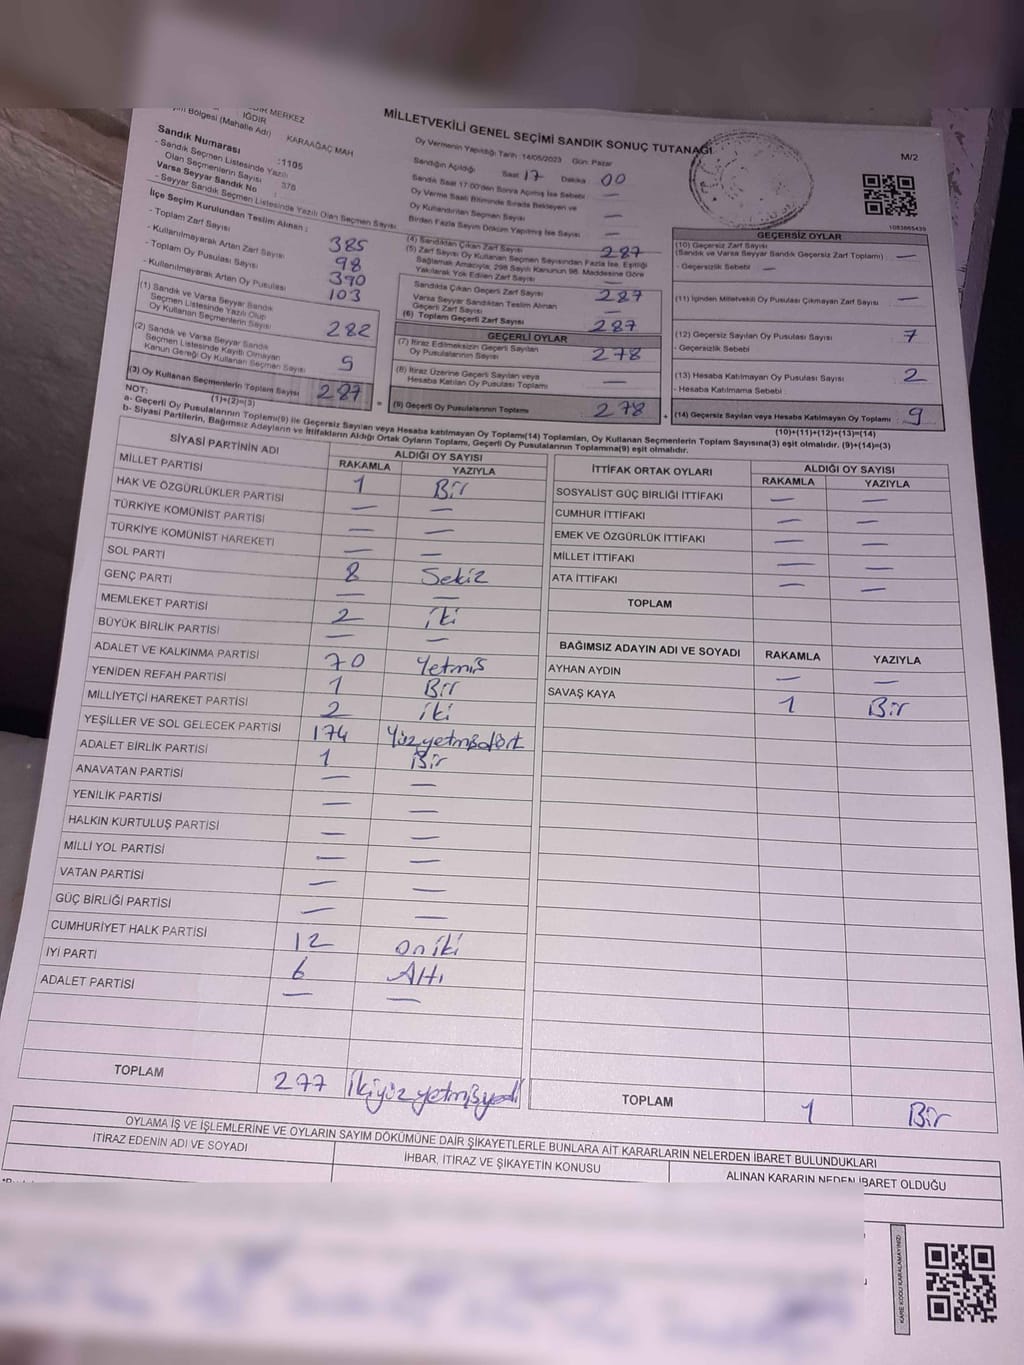 MİLLETVEKİLİ GENEL SEÇİMİ SANDIK SONUÇ TUTANAĞI
M/2
MERKEZ
IĞDIR
Bölgesi (Mahalle Adı) KARAAĞAÇ MAH
Oy Vermenin Yapıldığı Tarih: 14/05/2023 Gün: Pazar
Sandık Numarası :1105
- Sandık Seçmen Listesinde Yazılı
Olan Seçmenlerin Sayısı : 376
Varsa Seyyar Sandık No :
- Seyyar Sandık Seçmen Listesinde Yazılı Olan Seçmen Sayısı
Sandığın Açıldığı Saat 17 Dakika 00
Sandık Saat 17:00'den Sonra Açılmış İse Sebebi —
Oy Verme Saati Bitiminde Sırada Bekleyen ve
Oy Kullandırılan Seçmen Sayısı —
Birden Fazla Sayım Döküm Yapılmış İse Sayısı —
İlçe Seçim Kurulundan Teslim Alınan :
- Toplam Zarf Sayısı 385
- Kullanılmayarak Artan Zarf Sayısı 98
- Toplam Oy Pusulası Sayısı 390
- Kullanılmayarak Artan Oy Pusulası 103
(1) Sandık ve Varsa Seyyar Sandık
Seçmen Listesinde Yazılı Olup
Oy Kullanan Seçmenlerin Sayısı 282
(2) Sandık ve Varsa Seyyar Sandık
Seçmen Listesinde Kayıtlı Olmayan
Kanun Gereği Oy Kullanan Seçmen Sayısı 5
(3) Oy Kullanan Seçmenlerin Toplam Sayısı 287
(1)+(2)=(3)
(4) Sandıktan Çıkan Zarf Sayısı 287
(5) Zarf Sayısı Oy Kullanan Seçmen Sayısından Fazla İse, Eşitliği
Sağlamak Amacıyla, 298 Sayılı Kanunun 98. Maddesine Göre
Yakılarak Yok Edilen Zarf Sayısı —
Sandıkta Çıkan Geçerli Zarf Sayısı 287
Varsa Seyyar Sandıktan Teslim Alınan
Geçerli Zarf Sayısı —
(6) Toplam Geçerli Zarf Sayısı 287
GEÇERLİ OYLAR
(7) İtiraz Edilmeksizin Geçerli Sayılan
Oy Pusulalarının Sayısı 278
(8) İtiraz Üzerine Geçerli Sayılan veya
Hesaba Katılan Oy Pusulası Toplamı —
(9) Geçerli Oy Pusulalarının Toplamı 278
1083665439
GEÇERSİZ OYLAR
(10) Geçersiz Zarf Sayısı
(Sandık ve Varsa Seyyar Sandık Geçersiz Zarf Toplamı) —
- Geçersizlik Sebebi —
(11) İçinden Milletvekili Oy Pusulası Çıkmayan Zarf Sayısı —
(12) Geçersiz Sayılan Oy Pusulası Sayısı 7
- Geçersizlik Sebebi
(13) Hesaba Katılmayan Oy Pusulası Sayısı 2
- Hesaba Katılmama Sebebi
(14) Geçersiz Sayılan veya Hesaba Katılmayan Oy Toplamı 9
(10)+(11)+(12)+(13)=(14)
NOT:
a- Geçerli Oy Pusulalarının Toplamı(9) ile Geçersiz Sayılan veya Hesaba katılmayan Oy Toplamı(14) Toplamları, Oy Kullanan Seçmenlerin Toplam Sayısına(3) eşit olmalıdır. (9)+(14)=(3)
b- Siyasi Partilerin, Bağımsız Adayların ve İttifakların Aldığı Ortak Oyların Toplamı, Geçerli Oy Pusulalarının Toplamına(9) eşit olmalıdır.
SİYASİ PARTİNİN ADI ALDIĞI OY SAYISI
RAKAMLA YAZIYLA
MİLLET PARTİSİ 1 Bir
HAK VE ÖZGÜRLÜKLER PARTİSİ — —
TÜRKİYE KOMÜNİST PARTİSİ — —
TÜRKİYE KOMÜNİST HAREKETİ — —
SOL PARTİ 8 Sekiz
GENÇ PARTİ — —
MEMLEKET PARTİSİ 2 iki
BÜYÜK BİRLİK PARTİSİ — —
ADALET VE KALKINMA PARTİSİ 70 Yetmiş
YENİDEN REFAH PARTİSİ 1 Bir
MİLLİYETÇİ HAREKET PARTİSİ 2 iki
YEŞİLLER VE SOL GELECEK PARTİSİ 174 Yüzyetmişdört
ADALET BİRLİK PARTİSİ 1 Bir
ANAVATAN PARTİSİ — —
YENİLİK PARTİSİ — —
HALKIN KURTULUŞ PARTİSİ — —
MİLLİ YOL PARTİSİ — —
VATAN PARTİSİ — —
GÜÇ BİRLİĞİ PARTİSİ — —
CUMHURİYET HALK PARTİSİ 12 on iki
İYİ PARTİ 6 Altı
ADALET PARTİSİ — —
TOPLAM 277 ikiyüz yetmişyedi
İTTİFAK ORTAK OYLARI ALDIĞI OY SAYISI
RAKAMLA YAZIYLA
SOSYALİST GÜÇ BİRLİĞİ İTTİFAKI — —
CUMHUR İTTİFAKI — —
EMEK VE ÖZGÜRLÜK İTTİFAKI — —
MİLLET İTTİFAKI — —
ATA İTTİFAKI — —
TOPLAM
BAĞIMSIZ ADAYIN ADI VE SOYADI RAKAMLA YAZIYLA
AYHAN AYDIN — —
SAVAŞ KAYA 1 Bir
TOPLAM 1 Bir
OYLAMA İŞ VE İŞLEMLERİNE VE OYLARIN SAYIM DÖKÜMÜNE DAİR ŞİKAYETLERLE BUNLARA AİT KARARLARIN NELERDEN İBARET BULUNDUKLARI
İTİRAZ EDENİN ADI VE SOYADI İHBAR, İTİRAZ VE ŞİKAYETİN KONUSU ALINAN KARARIN NEDEN İBARET OLDUĞU
KARE KODU KARALAMAYINIZ!